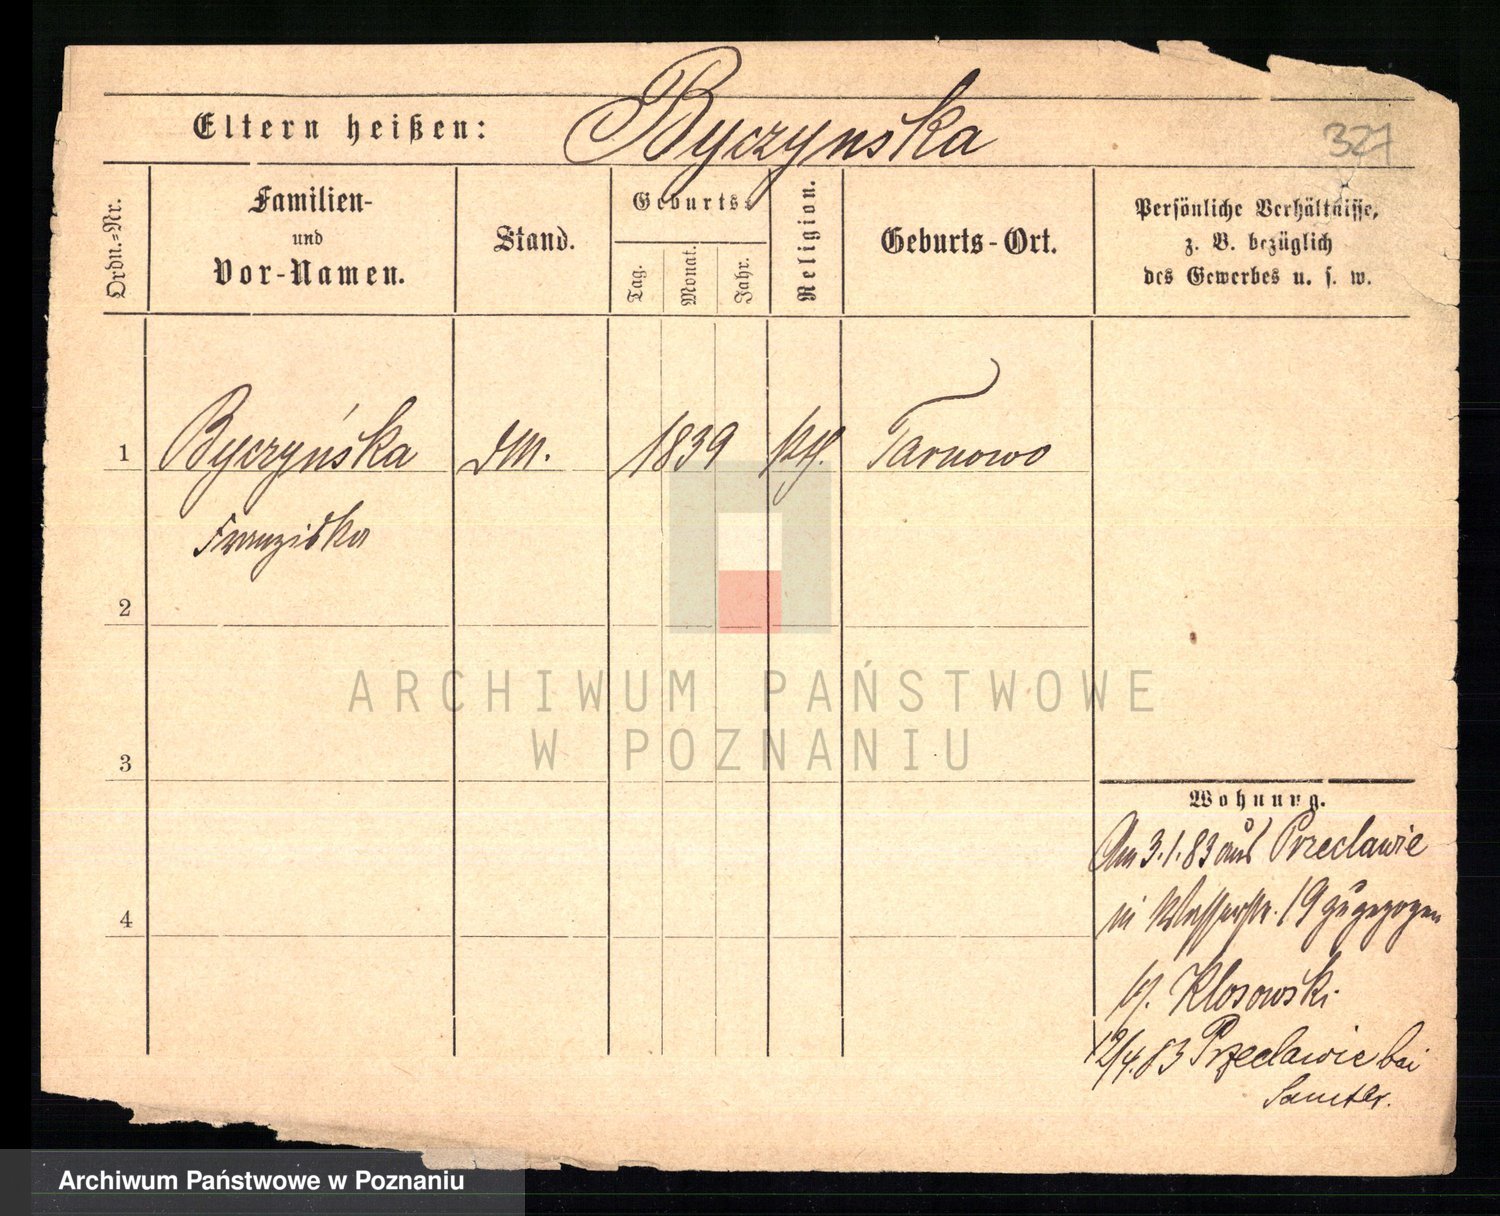 Eltern heißen: Byczynska
327
Ordn.-Nr.
Familien-
und
Vor-Namen.
Stand.
Geburts-
Tag.
Monat.
Jahr.
Religion.
Geburts-Ort.
Persönliche Verhältnisse,
z. B. bezüglich
des Gewerbes u. s. w.
1 Byczyńska DM. 1839 kth. Tarnowo
Franziska
2
3
4
Wohnung.
Am 3.1.83 aus Przeclawie
in Wasserstr. 19 zugezogen
Klosowski.
12/4.83 Przeclawie bei
Samter.
ARCHIWUM PAŃSTWOWE
W POZNANIU
Archiwum Państwowe w Poznaniu